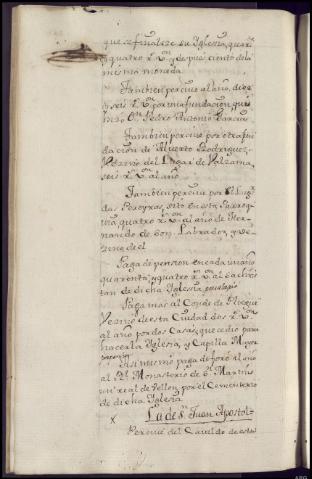 que se finalize su Iglesia, quaren
y quatro r.s V.on y despues ciento de la
misma moneda.
Tambien percive al año, diez
y seis r.s V.on por una fundacion que
hizo D.n Pedro Antonio Garcia
Tambien percive por otra fun
dacion de Alverto Rodriguez
Vezino del Lugar de
seis r.s V.on al año
Tambien percive por el Lug.r
das Pereyras, sito en esta Parroq.
quatro r.s V.on al año de Fer-
nando de Labrador, y ve-
zino de el
Paga de pension en cada un año
quarenta y quatro r.s V.on al Sachris
tan de dicha Iglesia
Paga mas al Conde de
Vezino de esta Ciudad dos r.s V.on
al año por dos Casas, que cedio para
hacer la Iglesia, y Capilla Mayor
Asi mismo paga de foro al año
al R.l Monasterio de S.n Martin
un real de vellon, por el Cementerio
de dicha Iglesia
X La de S.n Juan Apostol
Percive del Cavildo de esta